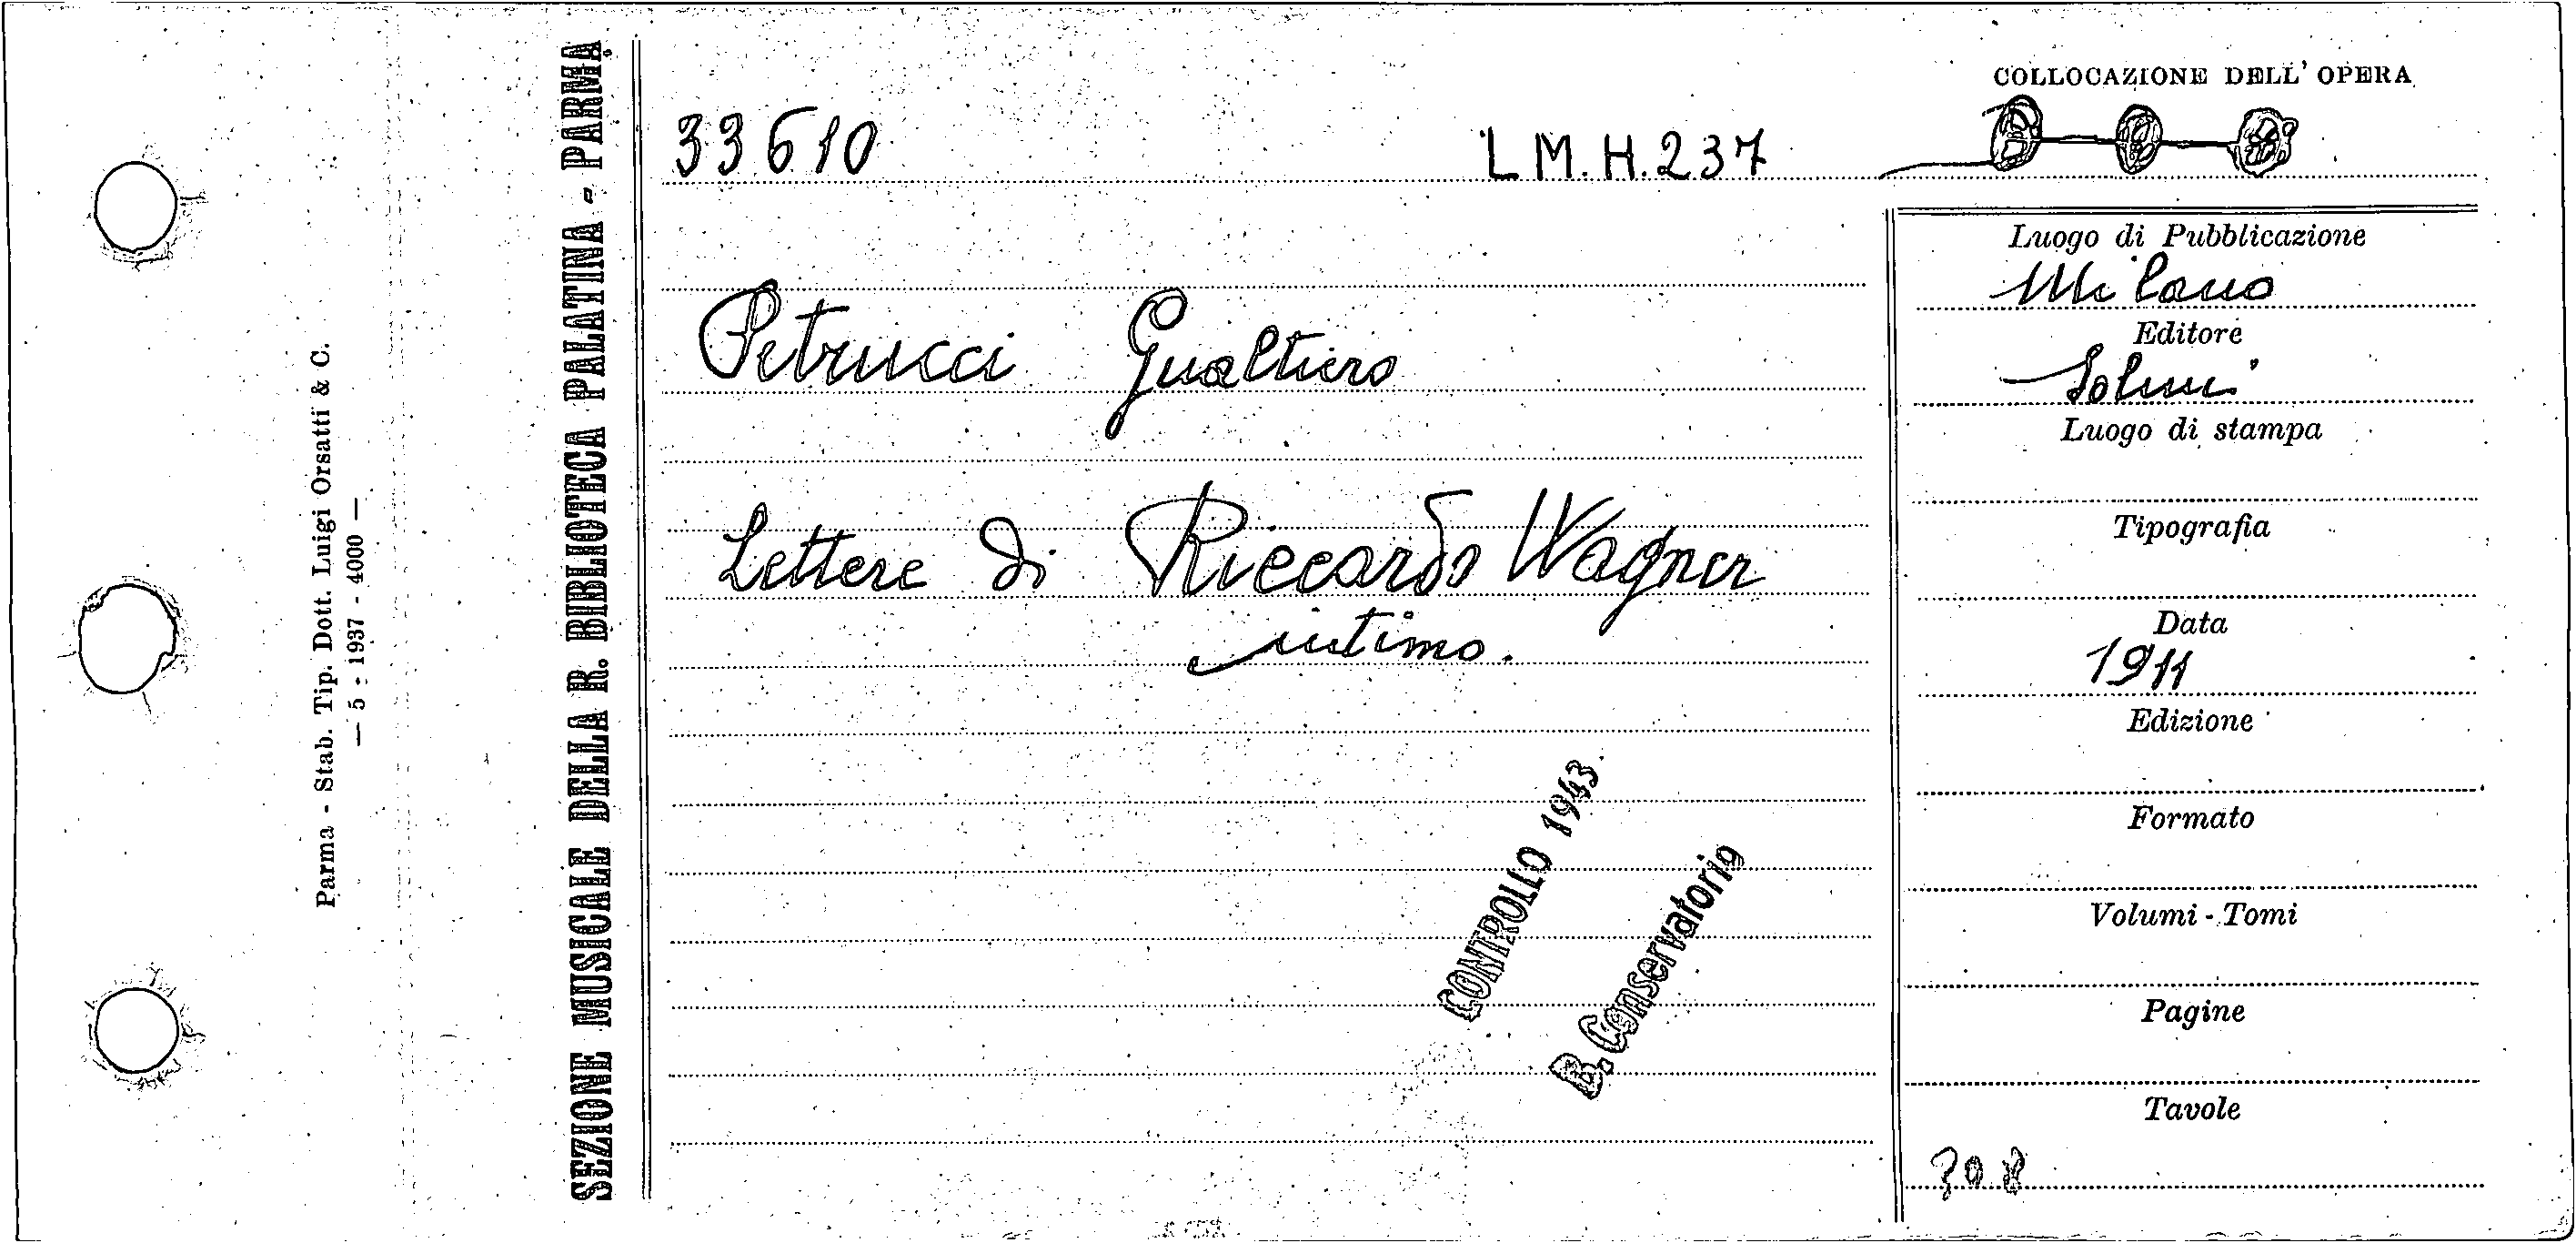 Parma - Stab. Tip. Dott. Luigi Orsatti & C.
— 5 - 1937 - 4000 —
SEZIONE MUSICALE DELLA R. BIBLIOTECA PALATINA - PARMA
COLLOCAZIONE DELL' OPERA
33610 L M. H. 237
Petrucci Gualtiero
Lettere di Riccardo Wagner
intimo.
CONTROLLO 1943
B. Conservatorio
Luogo di Pubblicazione
Milano
Editore
Solmi
Luogo di stampa
Tipografia
Data
1911
Edizione
Formato
Volumi - Tomi
Pagine
Tavole
308